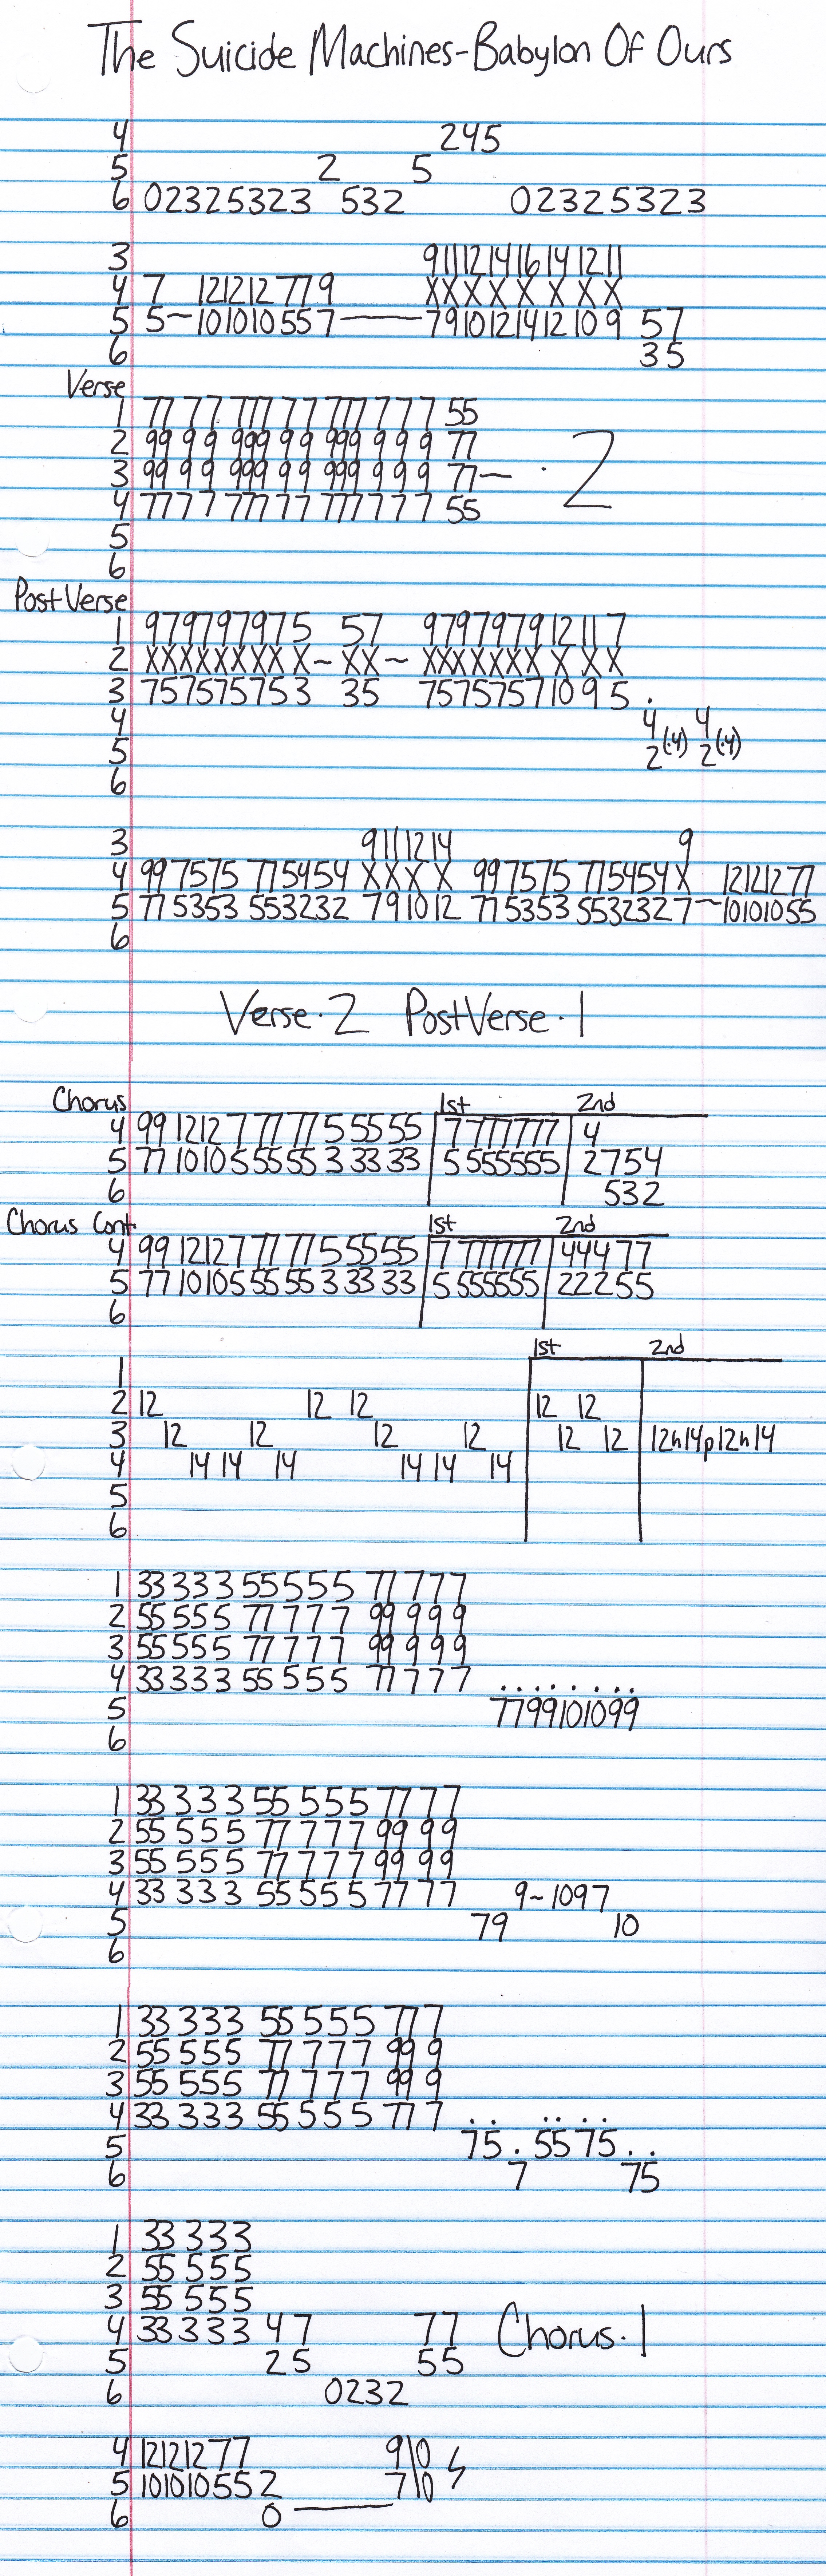 The Suicide Machines-Babylon Of Ours
4 245
5 2 5
6 02325323 532 02325323
3 911121416141211
4 7 121212779 XXXXXXXX
5 5~101010557—7910121412109 57
6 35
Verse
1 77 7 7 777 7 7 777 7 7 7 55
2 99 9 9 999 9 9 999 9 9 9 77
3 99 9 9 999 9 9 999 9 9 9 77— ·2
4 777 7 777 7 7 777 7 7 7 55
5
6
Post Verse
1 979797975 57 97979791211 7
2 XXXXXXXXX~XX~XXXXXXXXXX
3 757575753 35 7575757109 5 .
4 4(·4) 4(·4)
5 2 2
6
3 9111214 9
4 997575 775454 XXXX 997575 775454X 12121277
5 775353 553232 791012 775353 5532327~10101055
6
Verse·2 PostVerse·1
Chorus 1st 2nd
4 99 1212 7 77 77 5 55 55 7 777777 4
5 77 1010 5 55 55 3 33 33 5 555555 2754
6 532
Chorus Cont. 1st 2nd
4 99 1212 7 77 77 5 55 55 7 777777 44477
5 77 1010 5 55 55 3 33 33 5 555555 22255
6
1st 2nd
1
2 12 12 12 12 12
3 12 12 12 12 12 12 12h14p12h14
4 14 14 14 14 14 14
5
6
1 33 333 55 555 77 777
2 55 555 77 777 99 999
3 55 555 77 777 99 999
4 33 333 55 555 77 777 ........
5 7799101099
6
1 33 333 55 555 77 77
2 55 555 77 777 99 99
3 55 555 77 777 99 99
4 33 333 55 555 77 77 9~1097
5 79 10
6
1 33 333 55 555 77 7
2 55 555 77 777 99 9
3 55 555 77 777 99 9
4 33 333 55 555 77 7 .. ....
5 75 . 5575 ..
6 7 75
1 33 333
2 55 555
3 55 555
4 33 333 47 77 Chorus·1
5 25 55
6 0232
4 12121277 9\0
5 101010552 7\0
6 0—